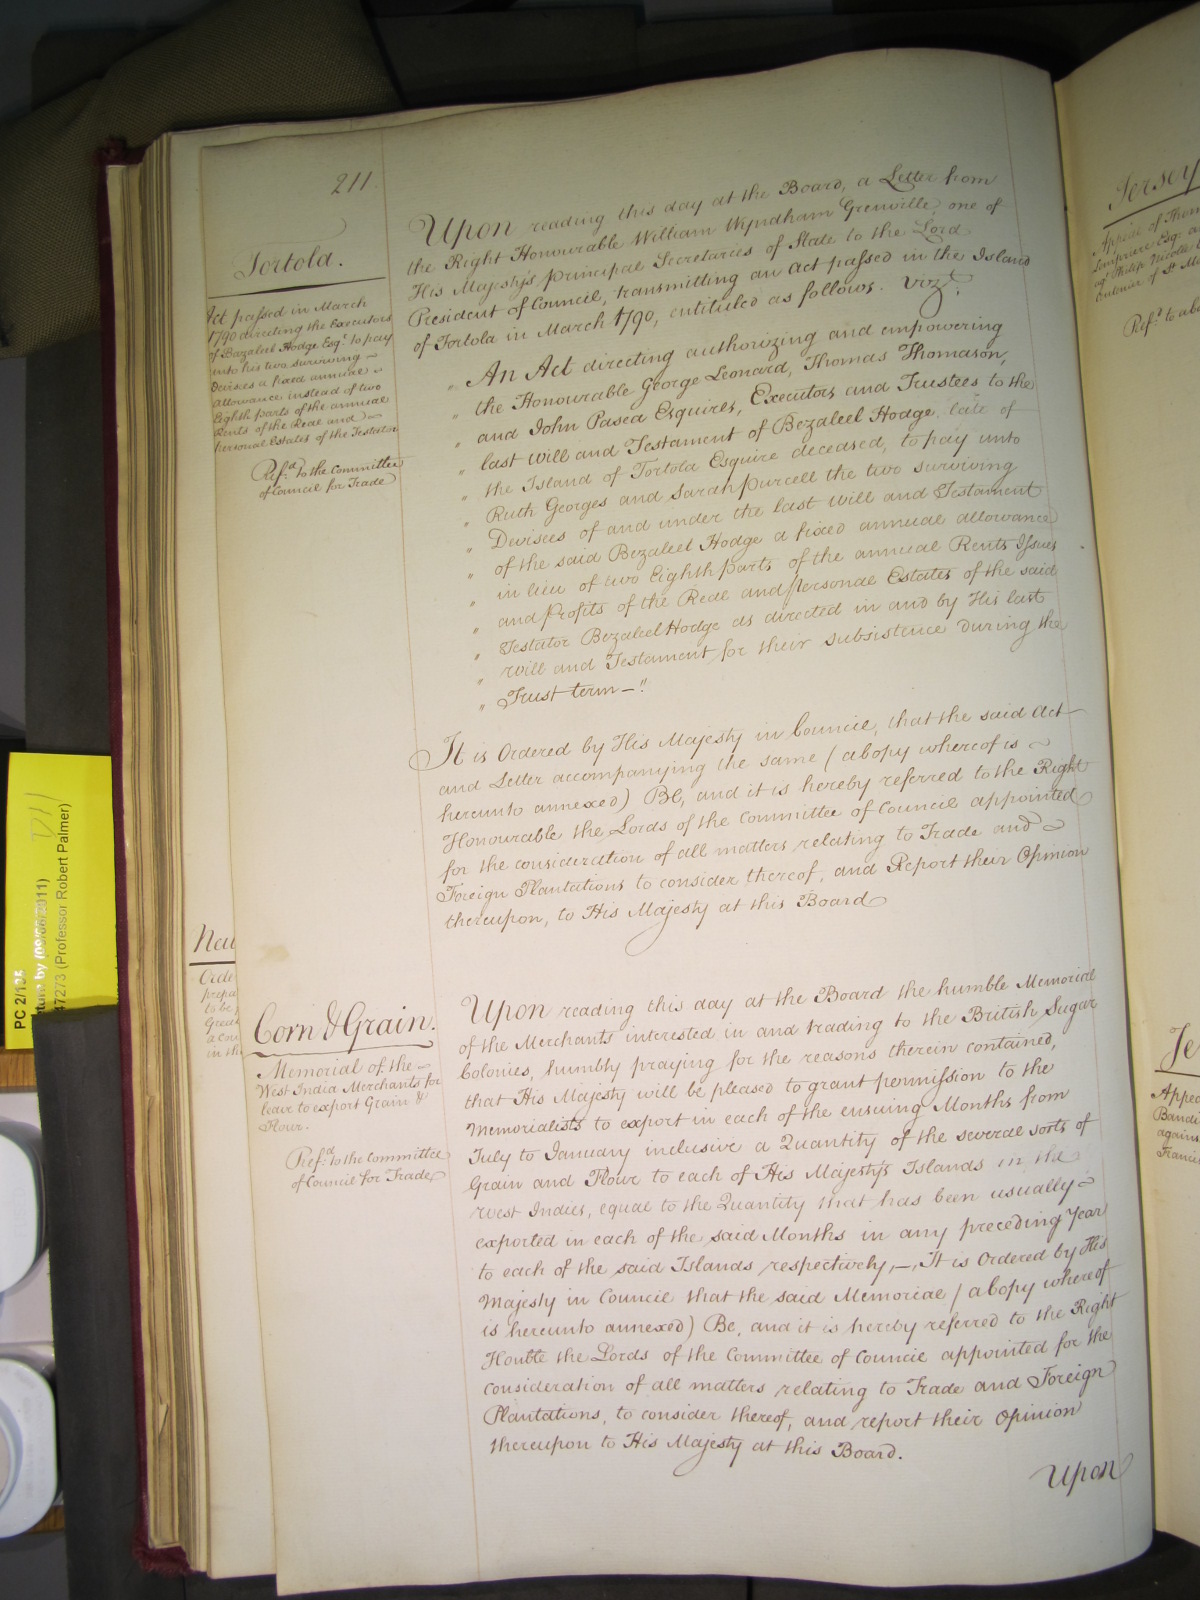 211.
Tortola.
Act passed in March
1790 directing the Executors
of Bazaleel Hodge Esqr. to pay
unto his two surviving
Devisees a fixed annual
allowance instead of two
Eighth parts of the annual
Rents of the Real and
personal Estates of the Testator
Refd. to the Committee
of Council for Trade
Upon reading this day at the Board, a Letter from
the Right Honourable William Wyndham Grenville, one of
His Majesty's Principal Secretaries of State to the Lord
President of Council, transmitting an Act passed in the Island
of Tortola in March 1790, entituled as follows. Vizt.
" An Act directing authorizing and empowering
" the Honourable George Leonard, Thomas Thomason,
" and John Pasea Esquires, Executors and Trustees to the
" last Will and Testament of Bezaleel Hodge late of
" the Island of Tortola Esquire deceased, to pay unto
" Ruth Georges and Sarah Purcell the two surviving
" Devisees of and under the last Will and Testament
" of the said Bezaleel Hodge a fixed annual allowance
" in lieu of two Eighth parts of the annual Rents Issues
" and Profits of the Real and personal Estates of the said
" Testator Bezaleel Hodge as directed in and by His last
" Will and Testament for their subsistence during the
" Trust term—"
It is Ordered by His Majesty in Council, that the said Act
and Letter accompanying the same (a Copy whereof is
hereunto annexed) Be, and it is hereby referred to the Right
Honourable the Lords of the Committee of Council appointed
for the consideration of all matters relating to Trade and
Foreign Plantations to consider thereof, and Report their Opinion
thereupon, to His Majesty at this Board
Corn & Grain.
Memorial of the
West India Merchants for
leave to export Grain &
Flour.
Refd. to the Committee
of Council for Trade
Upon reading this day at the Board the humble Memorial
of the Merchants interested in and trading to the British Sugar
Colonies, humbly praying for the reasons therein contained,
that His Majesty will be pleased to grant permission to the
Memorialists to export in each of the ensuing Months from
July to January inclusive a Quantity of the several sorts of
Grain and Flour to each of His Majesty's Islands in the
West Indies, equal to the Quantity that has been usually
exported in each of the said Months in any preceding Year
to each of the said Islands respectively,—, It is Ordered by His
Majesty in Council that the said Memorial (a Copy whereof
is hereunto annexed) Be, and it is hereby referred to the Right
Honble the Lords of the Committee of Council appointed for the
consideration of all matters relating to Trade and Foreign
Plantations, to consider thereof, and report their Opinion
thereupon to His Majesty at this Board.
Upon
Jersey
Appeal of Thom
Lempriere Esq.
Philip Nicolle
of St
Refd. to
Je
Appea
Bandi
agains
Francis
Orde
prepa
to be
in the
PC 2/135
47273 (Professor Robert Palmer)